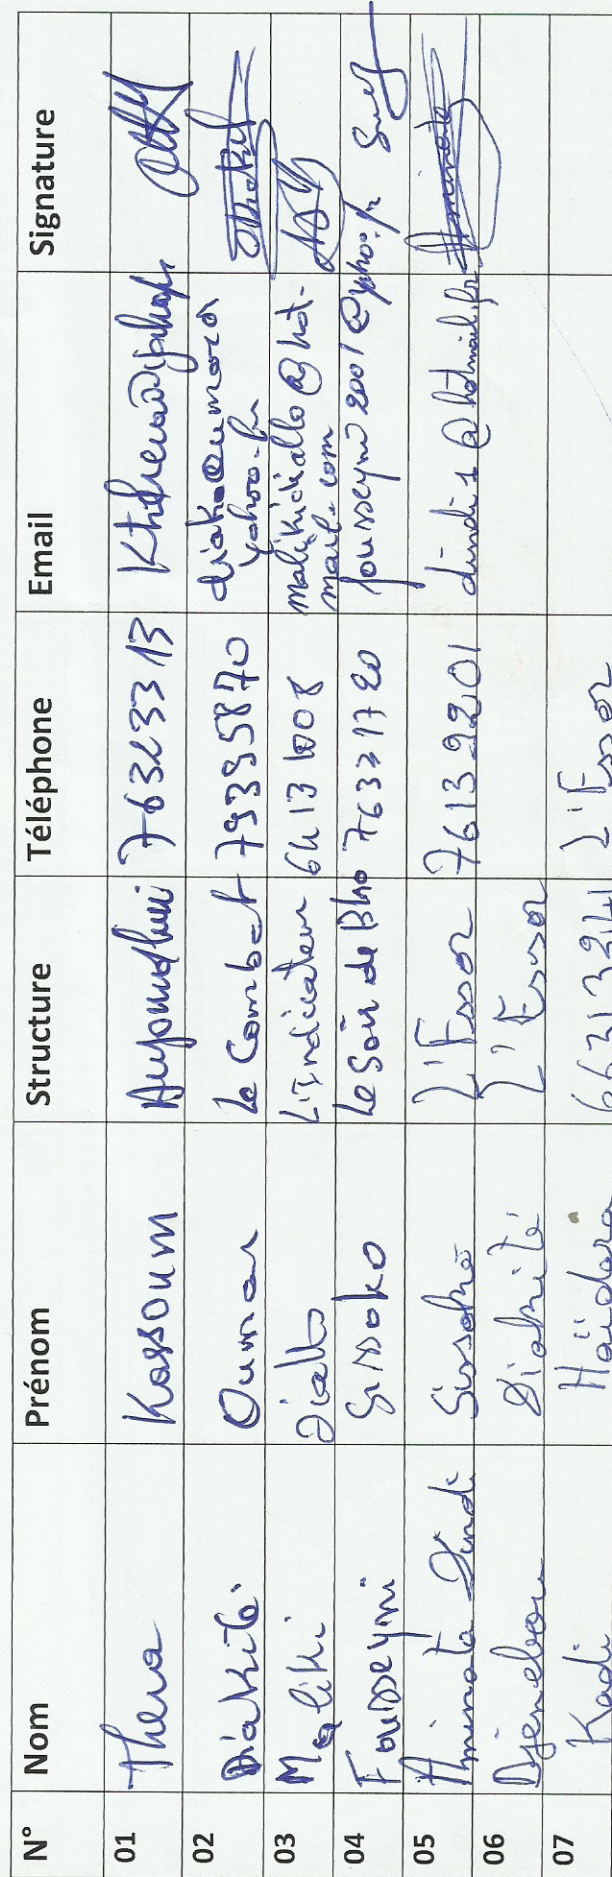 N° Nom Prénom Structure Téléphone Email Signature
01 Thera Kassoum 76323313
02 Diakité Oumar Le Combat 79395870 yahoo.fr
03 Maliki Diallo L'Indicateur 64131008 malikidiallo@hot-
mail.com
04 Fousseyni Sissoko Le Soir de Bko 76331720 fousseyni2001@yahoo.fr
05 Aminata Dindi Sissoko L'Essor 76139201 dindi1@hotmail.fr
06 Djenebou Diakité L'Essor
07 Kadi Haïdara 66313941 L'Essor